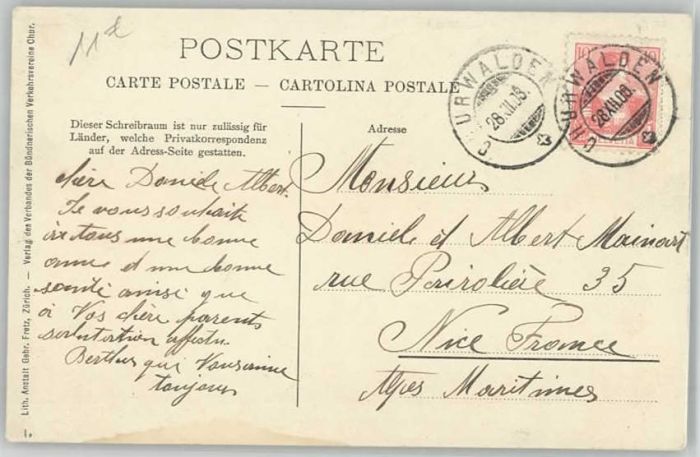 11
POSTKARTE
CARTE POSTALE — CARTOLINA POSTALE
CHURWALDEN
28.XII.08.
CHURWALDEN
28.XII.08.
10 10
HELVETIA
Dieser Schreibraum ist nur zulässig für
Länder, welche Privatkorrespondenz
auf der Adress-Seite gestatten.
Adresse
chère Daniele Albert
Je vous souhaite
une bonne
anne et une bonne
santé ainsi que
a Vos chère parents
affectu.
Berthe qui Vous aime
toujours
Monsieurs
Daniele et Albert Mainart
rue 35
Nice France
Alpes Maritimes
Lith. Anstalt Gebr. Fretz, Zürich. — Verlag des Verbandes der Bündnerischen Verkehrsvereine Chur.
1.